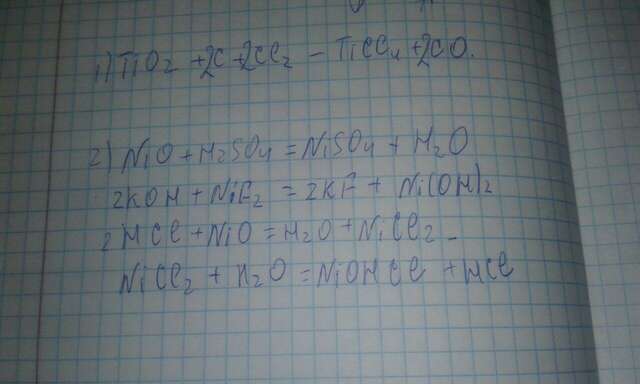 1) TiO2 + 2C + 2Cl2 - TiCl4 + 2CO.
2) NiO + H2SO4 = NiSO4 + H2O
2KOH + NiF2 = 2KF + Ni(OH)2
2HCl + NiO = H2O + NiCl2
NiCl2 + H2O = NiOHCl + HCl